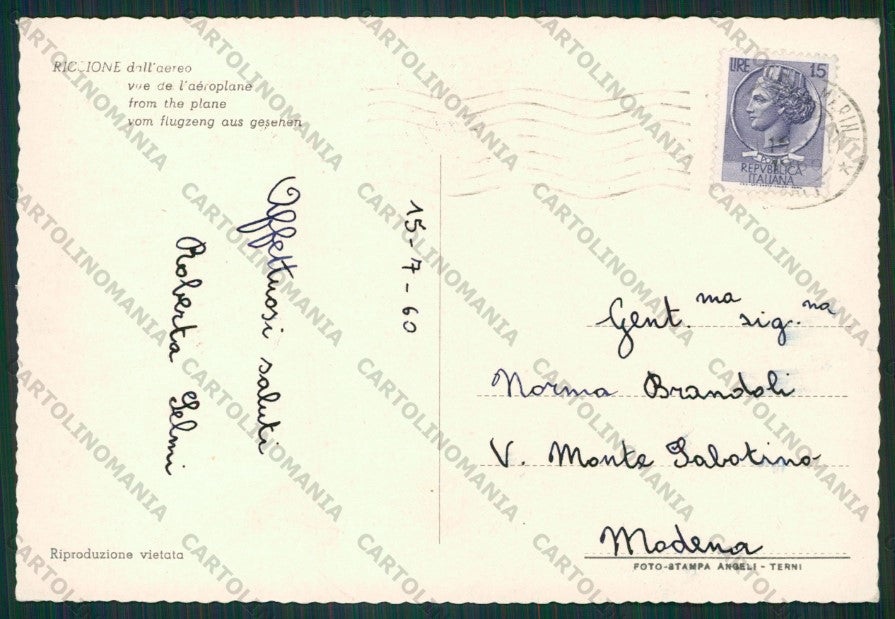 RICCIONE dall'aereo
vue de l'aéroplane
from the plane
vom flugzeng aus gesehen
LIRE 15
REPVBBLICA
ITALIANA
15-7-60
Affettuosi saluti
Roberta Selmi
Gent.ma sig.na
Norma Brandoli
V. Monte Sabotino
Modena
Riproduzione vietata
FOTO-STAMPA ANGELI - TERNI
CARTOLINOMANIA